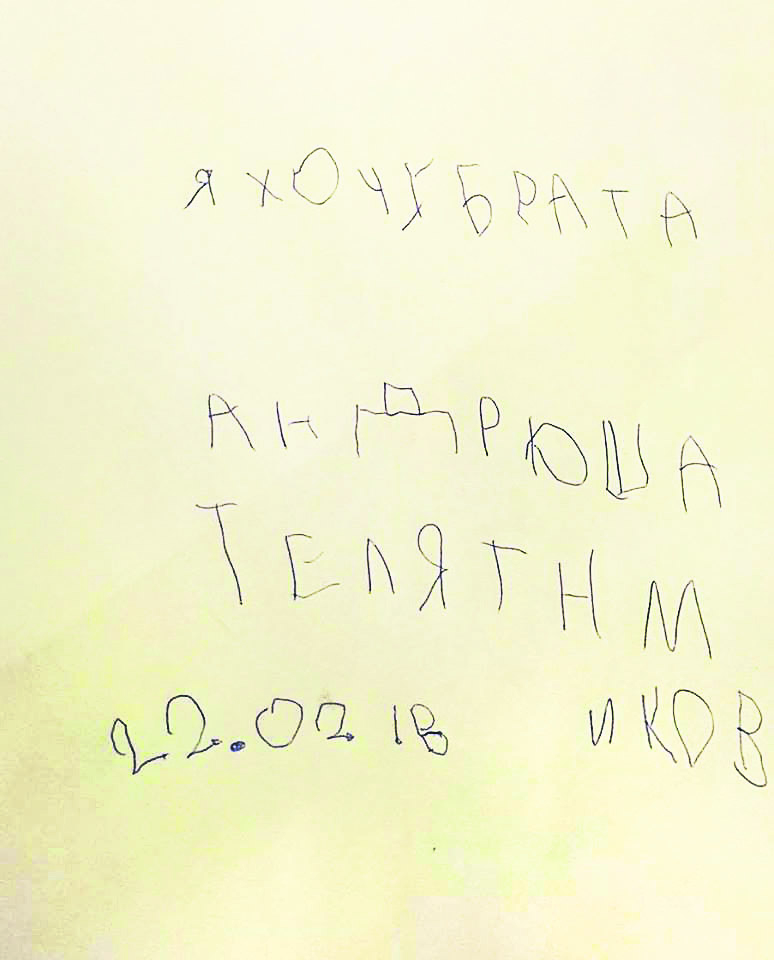 Я ХОЧУ БРАТА
АНДРЮША
ТЕЛЯТНМ
22.02.18 ИКОВ